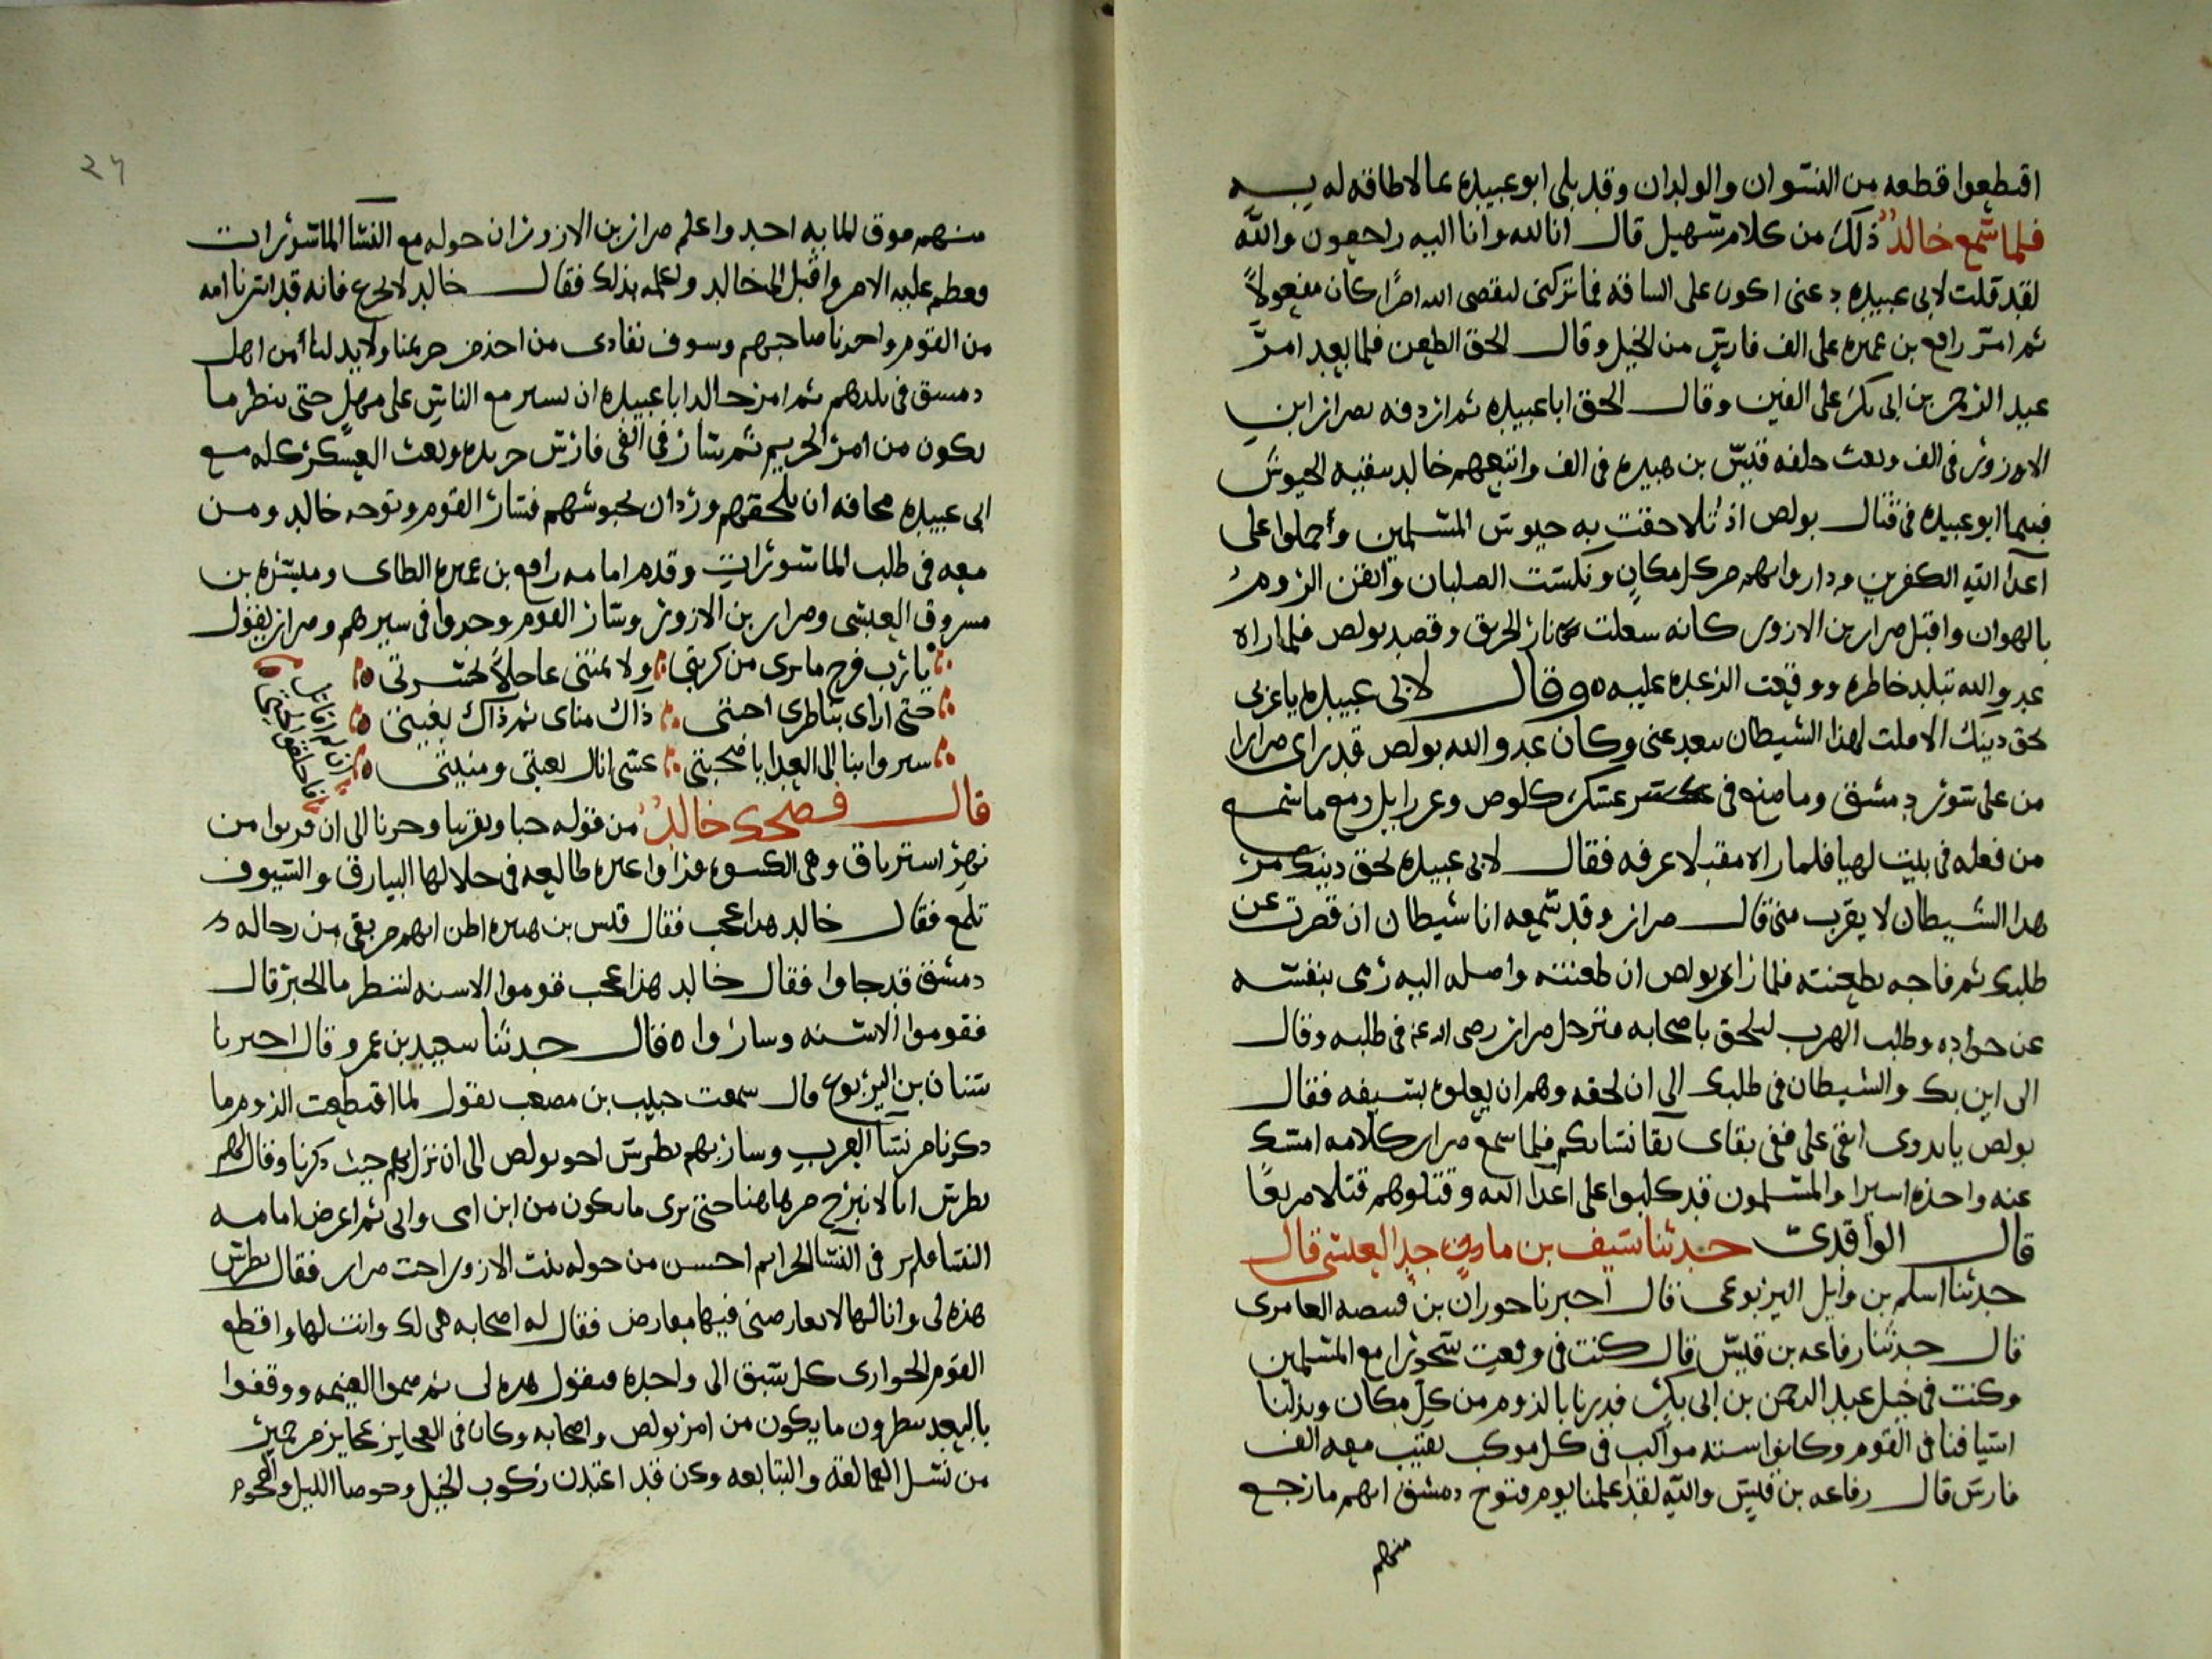 اقتطعوا قطعه من النسوان والولدان وقد بلى ابو عبيده بما لا طاقه له به
فلما سمع خالد ذلك من كلام سهيل قال انا لله وانا اليه راجعون والله
لقد قلت لابى عبيده دعنى اكون على الساقه فما تركنى ليقضى الله امرًا كان مفعولاً
ثم امر رافع بن عميره على الف فارس من الخيل وقال الحق الطعن فلما بعد امر
عبد الرحمن بن ابى بكر على الفين وقال الحق ابا عبيده ثم اردفه بضرار ابن
الازور فى الف وبعث خلفه قيس بن هبيره فى الف واتبعهم خالد ببقيه الجيوش
فبينما ابو عبيده فى قتال بولص اذ تلاحقت به جيوش المسلمين وحملوا على
اعدا الله الكفرين وداروا بهم من كل مكان ونكست الصلبان وايقن الروم
بالهوان واقبل ضرار بن الازور كانه شعلت نار الحريق وقصد بولص فلما راه
عدو الله تبلد خاطره ووقعت الرعده عليه ه وقال لابى عبيده يا عربى
بحق دينك الا ملت لهذا الشيطان يبعد عنى وكان عدو الله بولص قد راى ضرارا
من على سور دمشق وما صنع فى عسكر كلوص وعزرايل ومع ما سمع
من فعله فى بيت لهيا فلما راه مقبلا عرفه فقال لابى عبيده بحق دينك مر
هدا الشيطان لا يقرب منى قال ضرار وقد سمعه انا شيطان ان قصرت عن
طلبك ثم فاجه بطعنته فلما راى بولص ان طعنته واصله اليه رمى بنفسه
عن جواده وطلب الهرب ليلحق باصحابه فترجل ضرار رضى الله عنه فى طلبه وقال
الى اين بك والشيطان فى طلبك الى ان لحقه وهم ان يعلوه بسيفه فقال
بولص يا بدوى ابقى على ففى بقاى بقا نسايكم فلما سمع ضرار كلامه امسك
عنه واخذه اسيرا والمسلمون قد كلبوا على اعدا الله وقتلوهم قتلا مريعًا
قال الواقدى حدثنا سيف بن مادن جد العبسى قال
حدثنا اسلم بن وايل اليربوعى قال اخبرنا حوران بن قبيصه العامرى
قال حدثنا رفاعه بن قيس قال كنت فى وقعت سحورا مع المسلمين
وكنت فى خيل عبد الرحمن بن ابى بكر فدرنا بالروم من كل مكان وبذلنا
اسيافنا فى القوم وكانوا سته مواكب فى كل موكب نقيب معه الف
فارس قال رفاعه بن قيس والله لقد علمنا يوم فتوح دمشق انهم ما رجع
منهم
منهم فوق الما يه احد واعلم ضرار بن الازور ان خوله مع النسا الماسورات
فعظم عليه الامر واقبل الى خالد واعلمه بذلك فقال خالد لا تجزع فانه قد اسرنا امه
من القوم واخدنا صاحبهم وسوف نفادى من اخذ من حريمنا ولا بد لنا من اهل
دمسق فى بلدهم ثم امر خالد ابا عبيده ان يسير مع الناس على مهل حتى ينظر ما
يكون من امر الحريم ثم سار فى الفى فارس جريده وبعث العسكر كله مع
ابى عبيده مخافه ان يلحقهم وردان بجيوشهم فسار القوم وتوجه خالد ومن
معه فى طلب الماسورات وقدم امامه رافع بن عميره الطاى وميسره بن
مسروق العبسى وضرار بن الازور وسار القوم وجدوا فى سيرهم وضرار يقول
يا رب فرج ما برى من كربتى ولا تمتنى عاجلاً بحسرتى
حتى ارى بناظرى اختى ذاك مناى ثم ذاك بغيتى
سيروا بنا الى العدا يا صحبتى عسى انال بغيتى ومنيتى
قال فضحك خالد من قوله حبا وتقريبا وحزنا الى ان قربوا من
نهر استرياق وهى الكسوه فراوا غبره طالعه فى خلالها البيارق والسيوف
تلمع فقال خالد هدا عجب فقال قيس بن هبيره اظن انهم من بقى من رجاله
دمشق قد جاوا فقال خالد هذا عجب قوموا الاسنه لننظر ما الخبر قال
فقوموا الاسنه وساروا ه فقال حدثنا سعيد بن عمرو قال اخبرنا
سنان بن اليربوع قال سمعت حبيب بن مصعب يقول لما اقتطعت الروم ما
دكرنا من نسا العرب وسار بهم بطرس اخو بولص الى ان نزل بهم حيث ذكرنا وقال لهم
بطرس انا لا نبرح من هاهنا حتى نرى ما يكون من ابن امى وابى ثم اعرض امامه
النسا فلم ير فى النسا الحرايم احسن من خوله بنت الازور اخت ضرار فقال بطرس
هذه لى وانا لها لا يعارضنى فيها معارض فقال له اصحابه هى لك وانت لها واقطع
القوم الجوارى كل سبق الى واحده فيقول هده لى ثم ضموا الغنيمه ووقفوا
بالبعد ينظرون ما يكون من امر بولص واصحابه وكان فى العجايز عجايز من حمير
من نسل العمالقه والتبابعه وكن قد اعتدن ركوب الخيل وخوضا الليل والهجوم